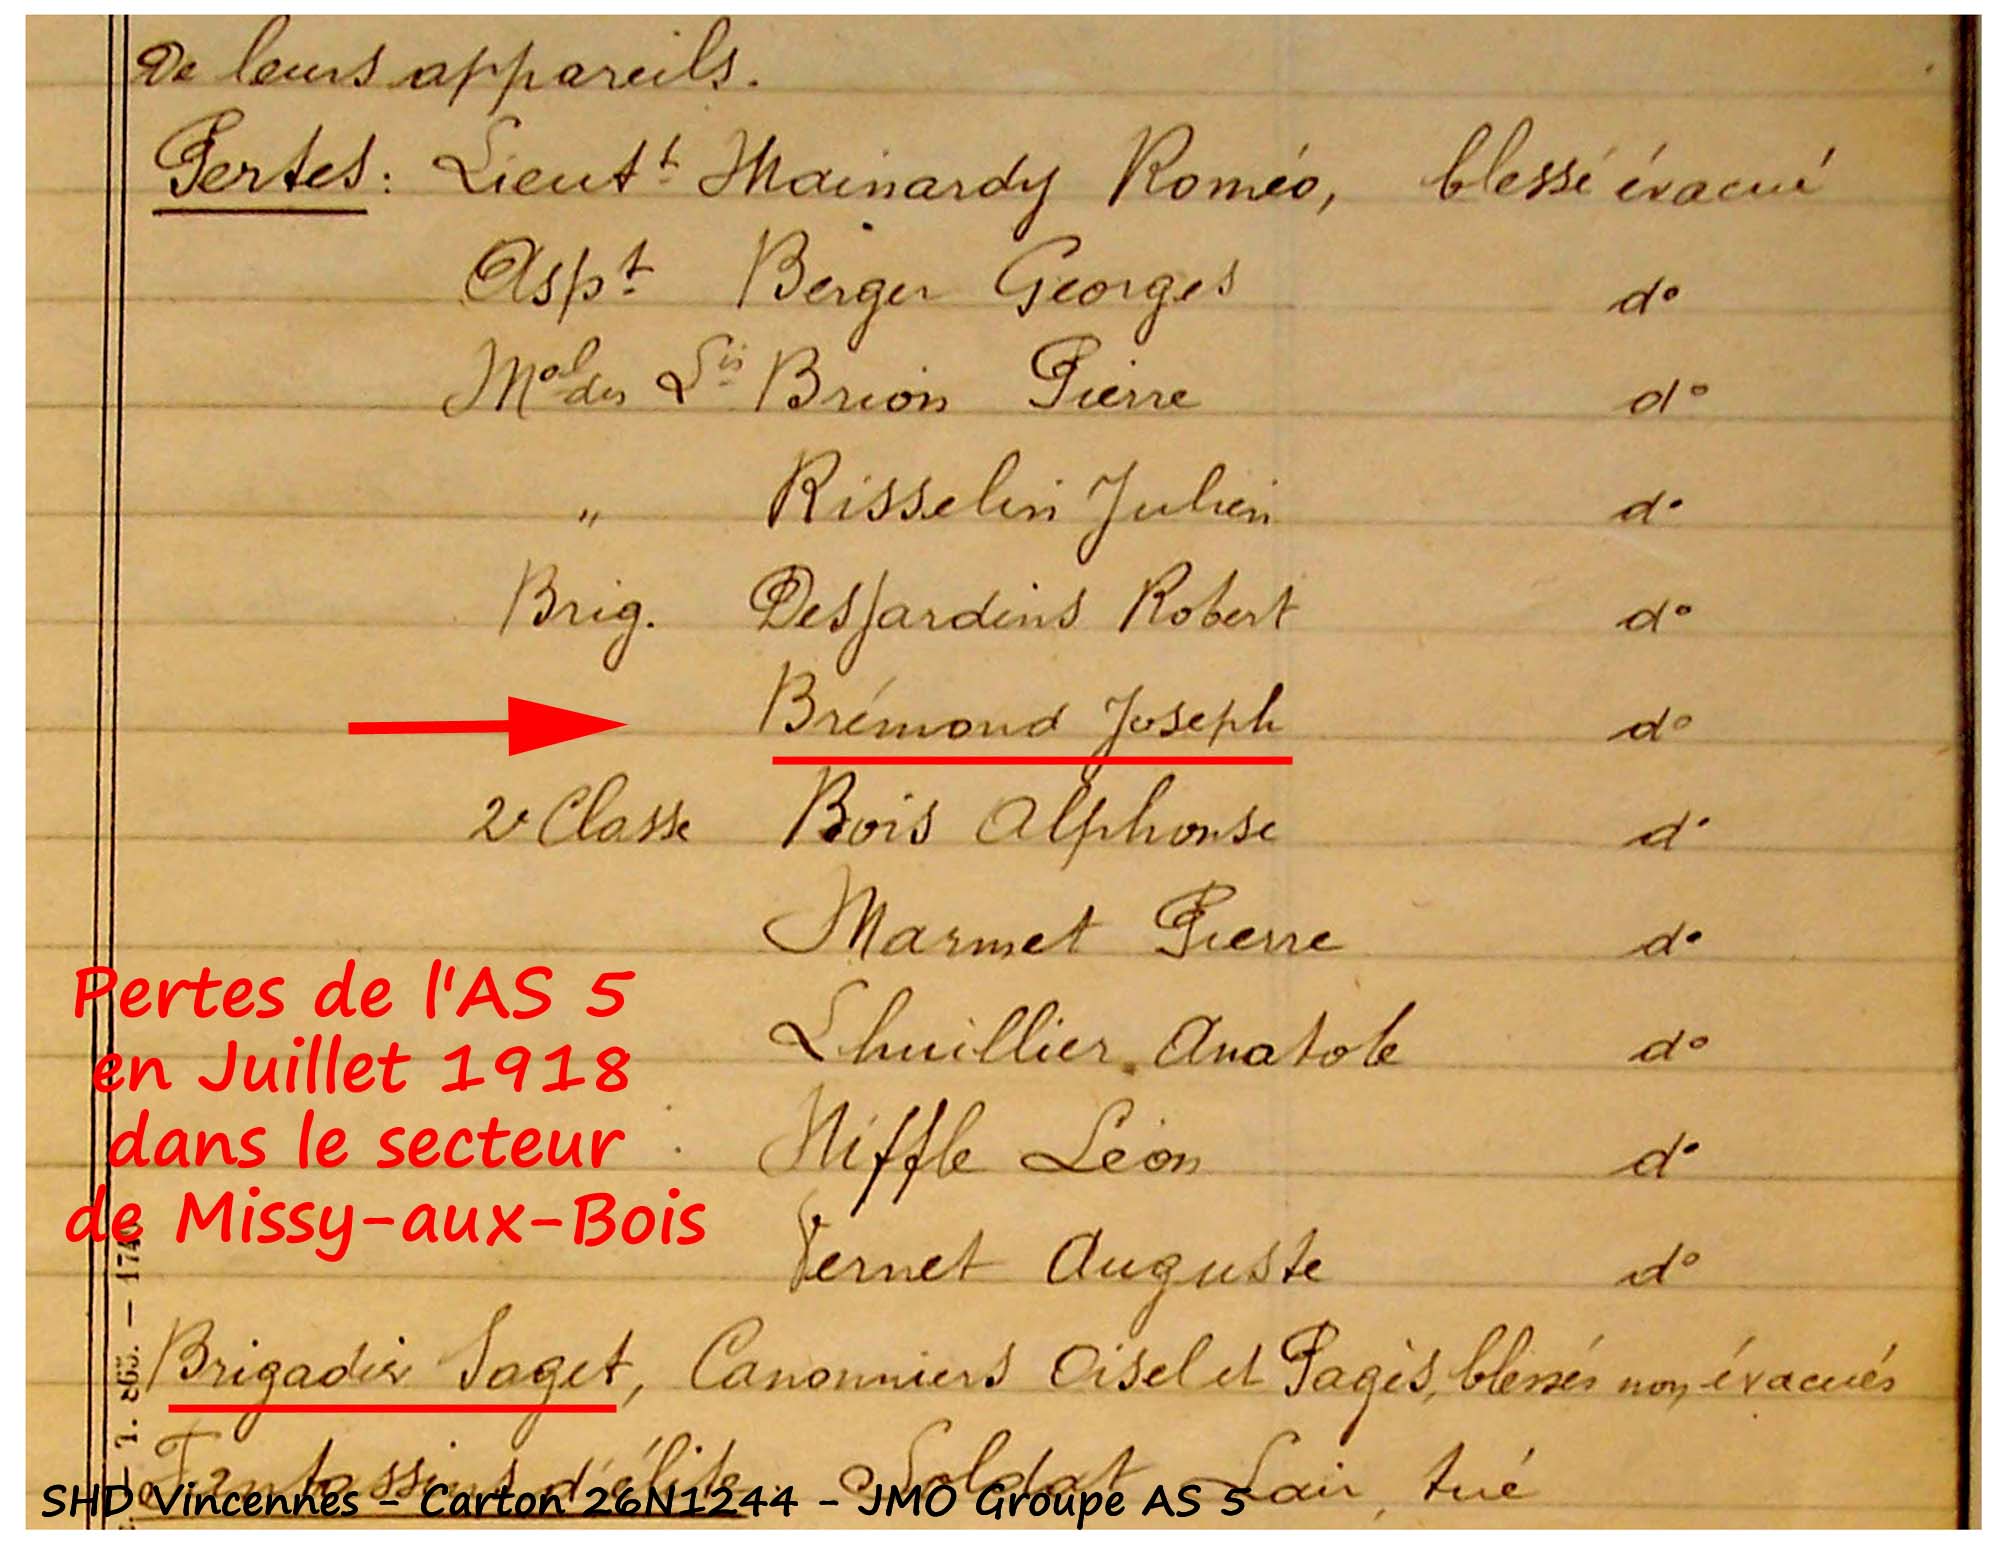 De leurs appareils.
Pertes : Lieutt Mainardy Roméo, blessé évacué
Aspt Berger Georges do
Mal des Lis Brion Pierre do
" Risselin Julien do
Brig. Desjardins Robert do
Brémond Joseph do
2e Classe Bois Alphonse do
Marmet Pierre do
Lhuillier Anatole do
Niffle Léon do
Vernet Auguste do
Brigadier Saget, Canonniers Oisel et Pagès, blessés non évacués
Fantassins d'élite. Soldat Lair, tué
Pertes de l'AS 5
en Juillet 1918
dans le secteur
de Missy-aux-Bois
SHD Vincennes - Carton 26N1244 - JMO Groupe AS 5